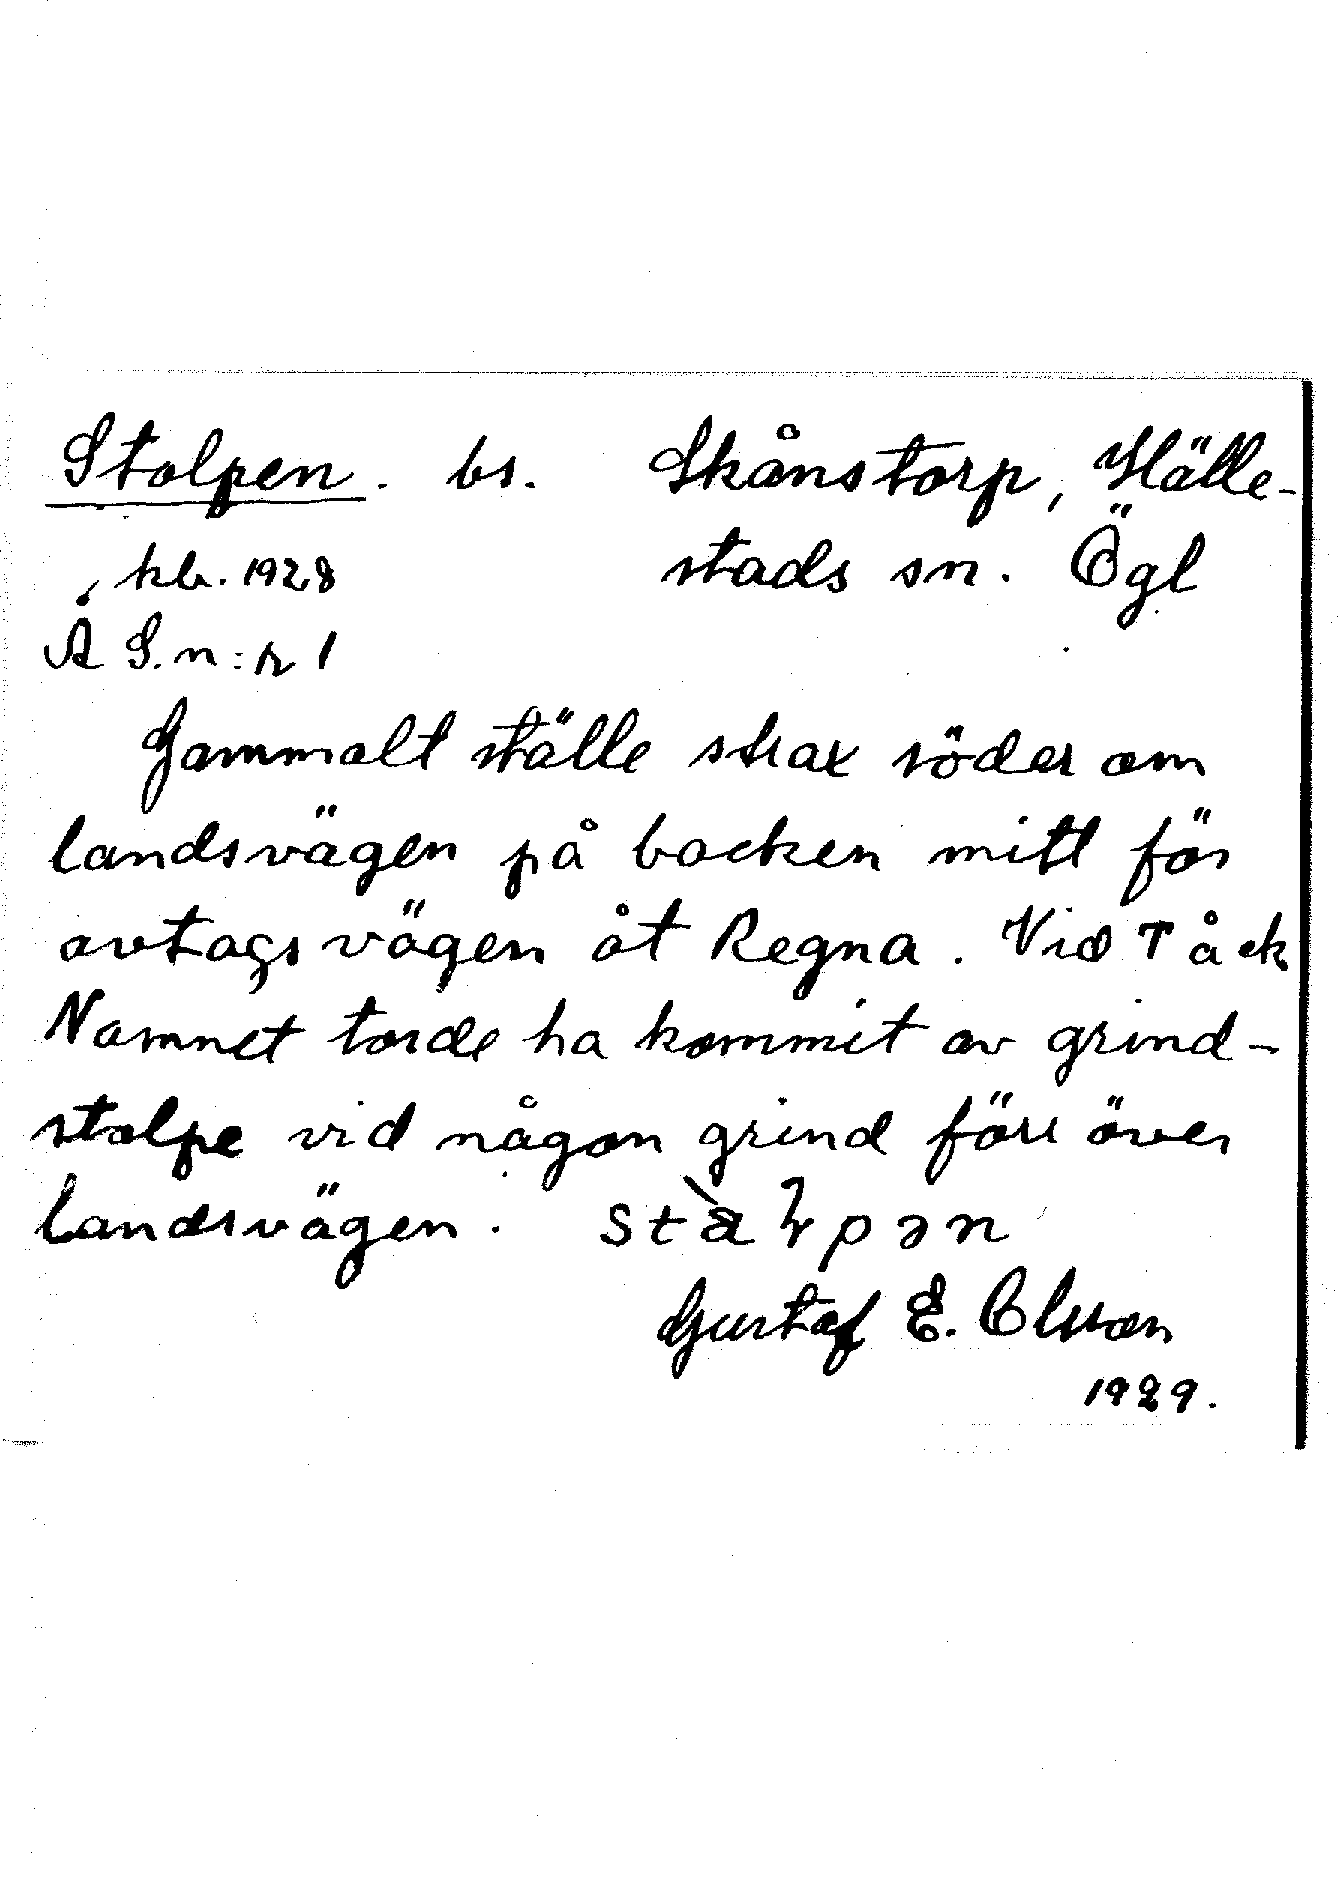 Stolpen. bs. Skånstorp, Hälle-
kb. 1928 stads sn. Ögl
S. n:r 1
Gammalt ställe strax söder om
landsvägen på backen mitt för
avtagsvägen åt Regna. Vid Tåck
Namnet torde ha kommit av grind-
stolpe vid någon grind förr över
landsvägen.
Gustaf E. Olsson
1929.